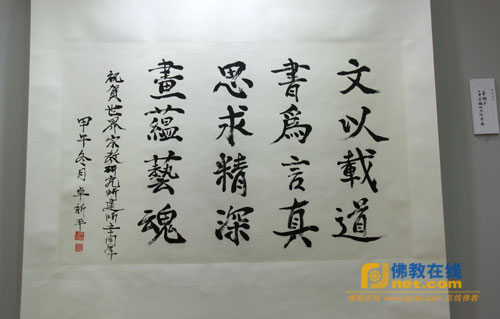 文以載道
書為言真
思求精深
畫蘊藝魂
祝賀世界宗教研究所建所五十周年
甲午冬月 卓新平
佛教在线
Fjnet.com
佛教在线 www.fjnet.com 在线佛教